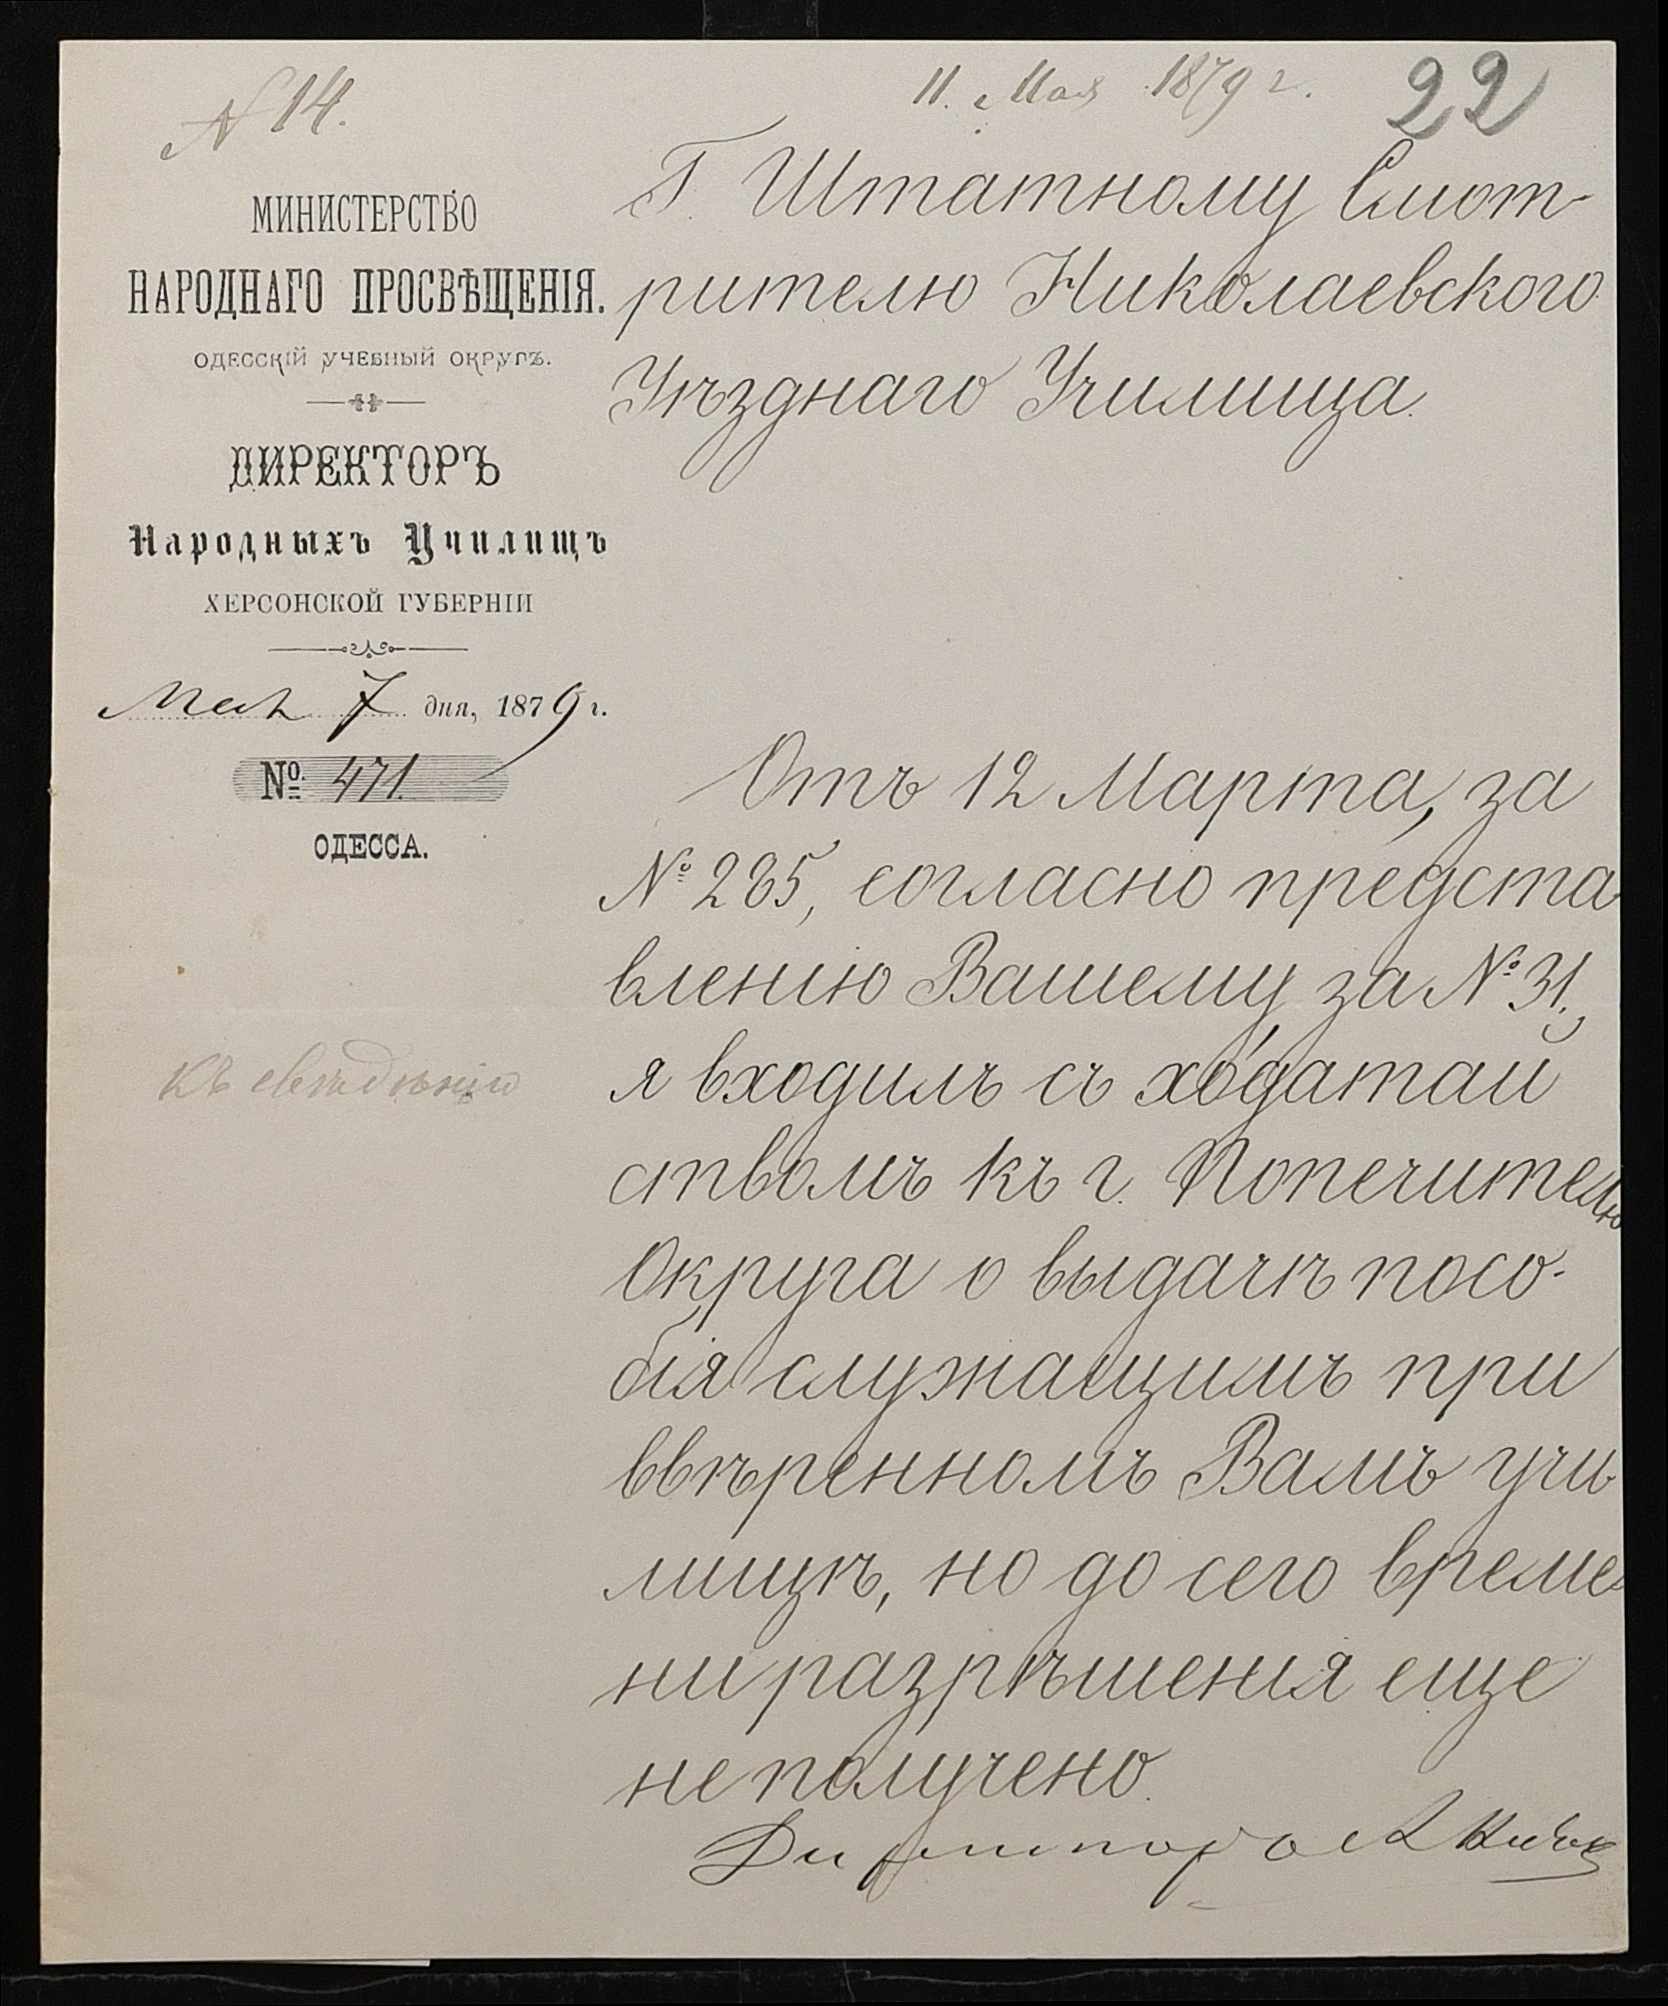 № 14.
11. Мая 1879 г.
22
МИНИСТЕРСТВО
НАРОДНАГО ПРОСВѢЩЕНІЯ.
ОДЕССКІЙ УЧЕБНЫЙ ОКРУГЪ.
ДИРЕКТОРЪ
Народныхъ Училищъ
ХЕРСОНСКОЙ ГУБЕРНІИ
Мая 7 дня, 1879 г.
№ 471.
ОДЕССА.
Къ свѣдѣнію
Г. Штатному Смот-
рителю Николаевского
Уѣзднаго Училища.
Отъ 12 Марта, за
№ 285, согласно предста
вленію Вашему за № 31,
я входилъ съ ходатай
ствомъ къ г. Попечителю
Округа о выдачѣ посо-
бія служащимъ при
ввѣренномъ Вамъ учи
лищѣ, но до сего време
ни разрѣшенія еще
не получено.
Директоръ